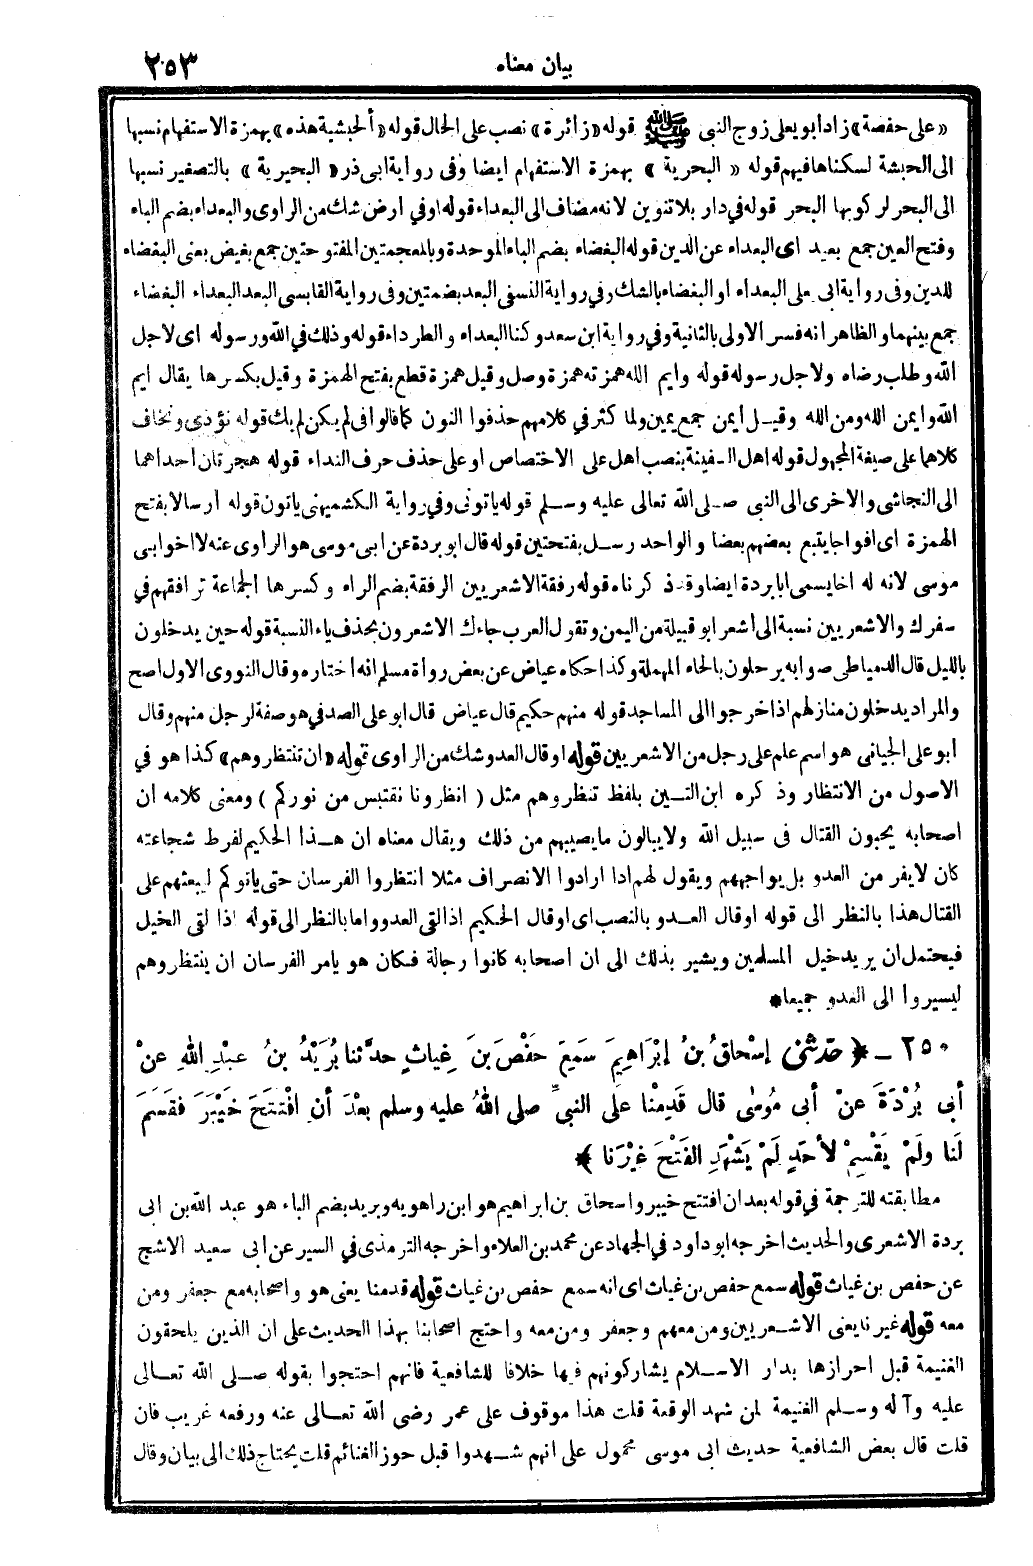 بيان معناه ٢٥٣
«على حفصة» زاد ابو يعلى زوج النبى ﷺ قوله «زائرة» نصب على الحال قوله «ألحبشية هذه» بهمزة الاستفهام نسبها
الى الحبشة لسكناها فيهم قوله «البحرية» بهمزة الاستفهام ايضا وفى رواية ابى ذر «البحيرية» بالتصغير نسبها
الى البحر لركوبها البحر قوله في دار بلا تنوين لانه مضاف الى البعداء قوله او في ارض شك من الراوى والبعداء بضم الباء
وفتح العين جمع بعيد اى البعداء عن الدين قوله البغضاء بضم الباء الموحدة وبالمعجمتين المفتوحتين جمع بغيض يعنى البغضاء
للدين وفى رواية ابى على البعداء او البغضاء بالشك وفي رواية النسفى البعد بضمتين وفى رواية القابسى البعد البعداء البغضاء
جمع بينهما والظاهر انه فسر الاولى بالثانية وفي رواية ابن سعد وكنا البعداء والطرداء قوله وذلك في الله ورسوله اى لاجل
الله وطلب رضاه ولاجل رسوله قوله وايم الله همزته همزة وصل وقيل همزة قطع بفتح الهمزة وقيل بكسرها يقال ايم
الله وايمن الله ومن الله وقيل أيمن جمع يمين ولما كثر في كلامهم حذفوا النون كما قالوا فى لم يكن لم يك قوله نؤذى ونخاف
كلاهما على صيغة المجهول قوله اهل السفينة بنصب اهل على الاختصاص او على حذف حرف النداء قوله هجرتان احداهما
الى النجاشى والاخرى الى النبى صلى الله تعالى عليه وسلم قوله ياتونى وفي رواية الكشميهنى ياتون قوله ارسالا بفتح
الهمزة اى افواجا يتبع بعضهم بعضا والواحد رسل بفتحتين قوله قال ابو بردة عن ابى موسى هو الراوى عنه لا اخو ابى
موسى لانه له اخا يسمى ابا بردة ايضا وقد ذكرناه قوله رفقة الاشعريين الرفقة بضم الراء وكسرها الجماعة ترافقهم في
سفرك والاشعريين نسبة الى أشعر ابو قبيلة من اليمن وتقول العرب جاءك الاشعرون بحذف ياء النسبة قوله حين يدخلون
بالليل قال الدمياطى صوابه يرحلون بالحاء المهملة وكذا حكاه عياض عن بعض رواة مسلم انه اختاره وقال النووى الاول اصح
والمراد يدخلون منازلهم اذا خرجوا الى المساجد قوله منهم حكيم قال عياض قال ابو على الصدفي هو صفة لرجل منهم وقال
ابو على الجيانى هو اسم علم على رجل من الاشعريين قوله او قال العدو شك من الراوى قوله «ان تنتظروهم» كذا هو في
الاصول من الانتظار وذكره ابن التين بلفظ تنظروهم مثل (انظرونا نقتبس من نوركم) ومعنى كلامه ان
اصحابه يحبون القتال فى سبيل الله ولا يبالون ما يصيبهم من ذلك ويقال معناه ان هذا الحكيم لفرط شجاعته
كان لا يفر من العدو بل يواجههم ويقول لهم اذا ارادوا الانصراف مثلا انتظروا الفرسان حتى ياتوكم ليبعثهم على
القتال هذا بالنظر الى قوله او قال العدو بالنصب اى او قال الحكيم اذا لقى العدو واما بالنظر الى قوله اذا لقى الخيل
فيحتمل ان يريد خيل المسلمين ويشير بذلك الى ان اصحابه كانوا رجالة فكان هو يامر الفرسان ان ينتظروهم
ليسيروا الى العدو جميعا *
٢٥٠ ـ ﴿ حدثنى إسْحاقُ بنُ إبْرَاهِيمَ سَمِعَ حَفْصَ بنَ غِياثٍ حدَّثنا بُرَيْدُ بنُ عبْدِ اللهِ عنْ
أبى بُرْدَةَ عنْ أبى مُوسٰى قال قَدِمْنا على النبىِّ صلى اللهُ عليه وسلم بعْدَ أنِ افْتَتَحَ خَيْبَرَ فقَسَمَ
لَنا ولَمْ يَقْسِمْ لأحَدٍ لَمْ يَشْهَدِ الفَتْحَ غيْرَنا ﴾
مطابقته للترجمة في قوله بعد ان افتتح خيبر واسحاق بن ابراهيم هو ابن راهويه وبريد بضم الباء هو عبد الله بن ابى
بردة الاشعرى والحديث اخرجه ابو داود في الجهاد عن محمد بن العلاء واخرجه الترمذى في السير عن ابى سعيد الاشج
عن حفص بن غياث قوله سمع حفص بن غياث اى انه سمع حفص بن غياث قوله قدمنا يعنى هو واصحابه مع جعفر ومن
معه قوله غيرنا يعنى الاشعريين ومن معهم وجعفر ومن معه واحتج اصحابنا بهذا الحديث على ان الذين يلحقون
الغنيمة قبل احرازها بدار الاسلام يشاركونهم فيها خلافا للشافعية فانهم احتجوا بقوله صلى الله تعالى
عليه وآله وسلم الغنيمة لمن شهد الوقعة قلت هذا موقوف على عمر رضى الله تعالى عنه ورفعه غريب فان
قلت قال بعض الشافعية حديث ابى موسى محمول على انهم شهدوا قبل حوز الغنائم قلت يحتاج ذلك الى بيان وقال